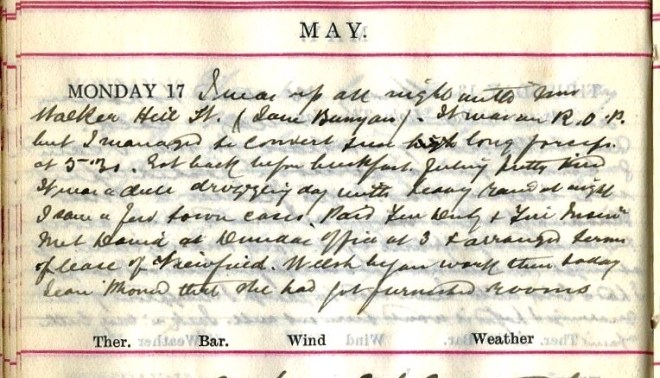 MAY.
MONDAY 17 I was up all night with Mrs
Walker Hill St. (Jane Bunyan). It was an R.O.P.
but I managed to convert and long forceps.
at 5.30. Got back before breakfast. feeling pretty tired
It was a dull drizzling day with heavy rain at night
I saw a few town cases. Paid Feu Duty & Fire Insur
Met David at Dundas office at 3 & arranged terms
of lease of Viewfield. Welsh began work there today
Jean 'Phoned that she had got furnished rooms
Ther. Bar. Wind Weather